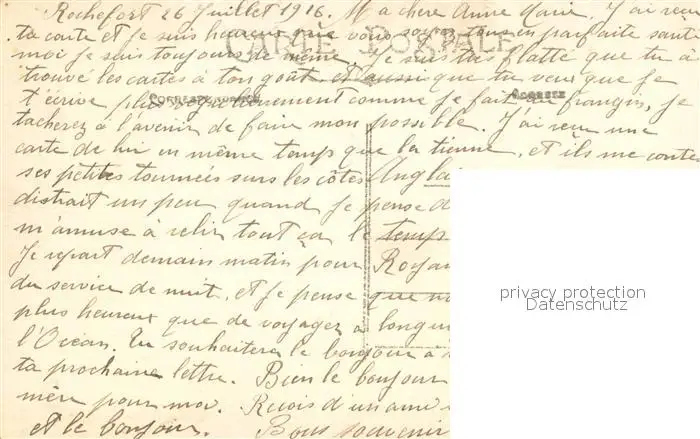 Rochefort 26 Juillet 1916. Ma chère Anne Marie, J'ai reçu
ta carte et je suis heureux que vous soyez tous en parfaite santé
CARTE POSTALE
moi je suis toujours de même. Je suis très flatté que tu a
trouvé les cartes à ton goût et aussi que tu veux que je
CORRESPONDANCE
ADRESSE
t'écrive plus longuement comme je fait au frangin, je
tacherez à l'avenir de faire mon possible. J'ai reçu une
carte de lui en même temps que la tienne, et ils me conte
ses petites tournées surs les côtes Angla
distrait un peu quand je pense
m'amuse à relir tout ça le temps
Je repart demain matin pour Royan
du service de nuit, et je pense que
plus heureux que de voyagez à longu
l'Océan. Tu souhaiteras le bonjour à
ta prochaine lettre. Bien le bonjour
mère pour moi. Reçois d'un ami
et le bonjour. Bons souvenir
privacy protection
Datenschutz